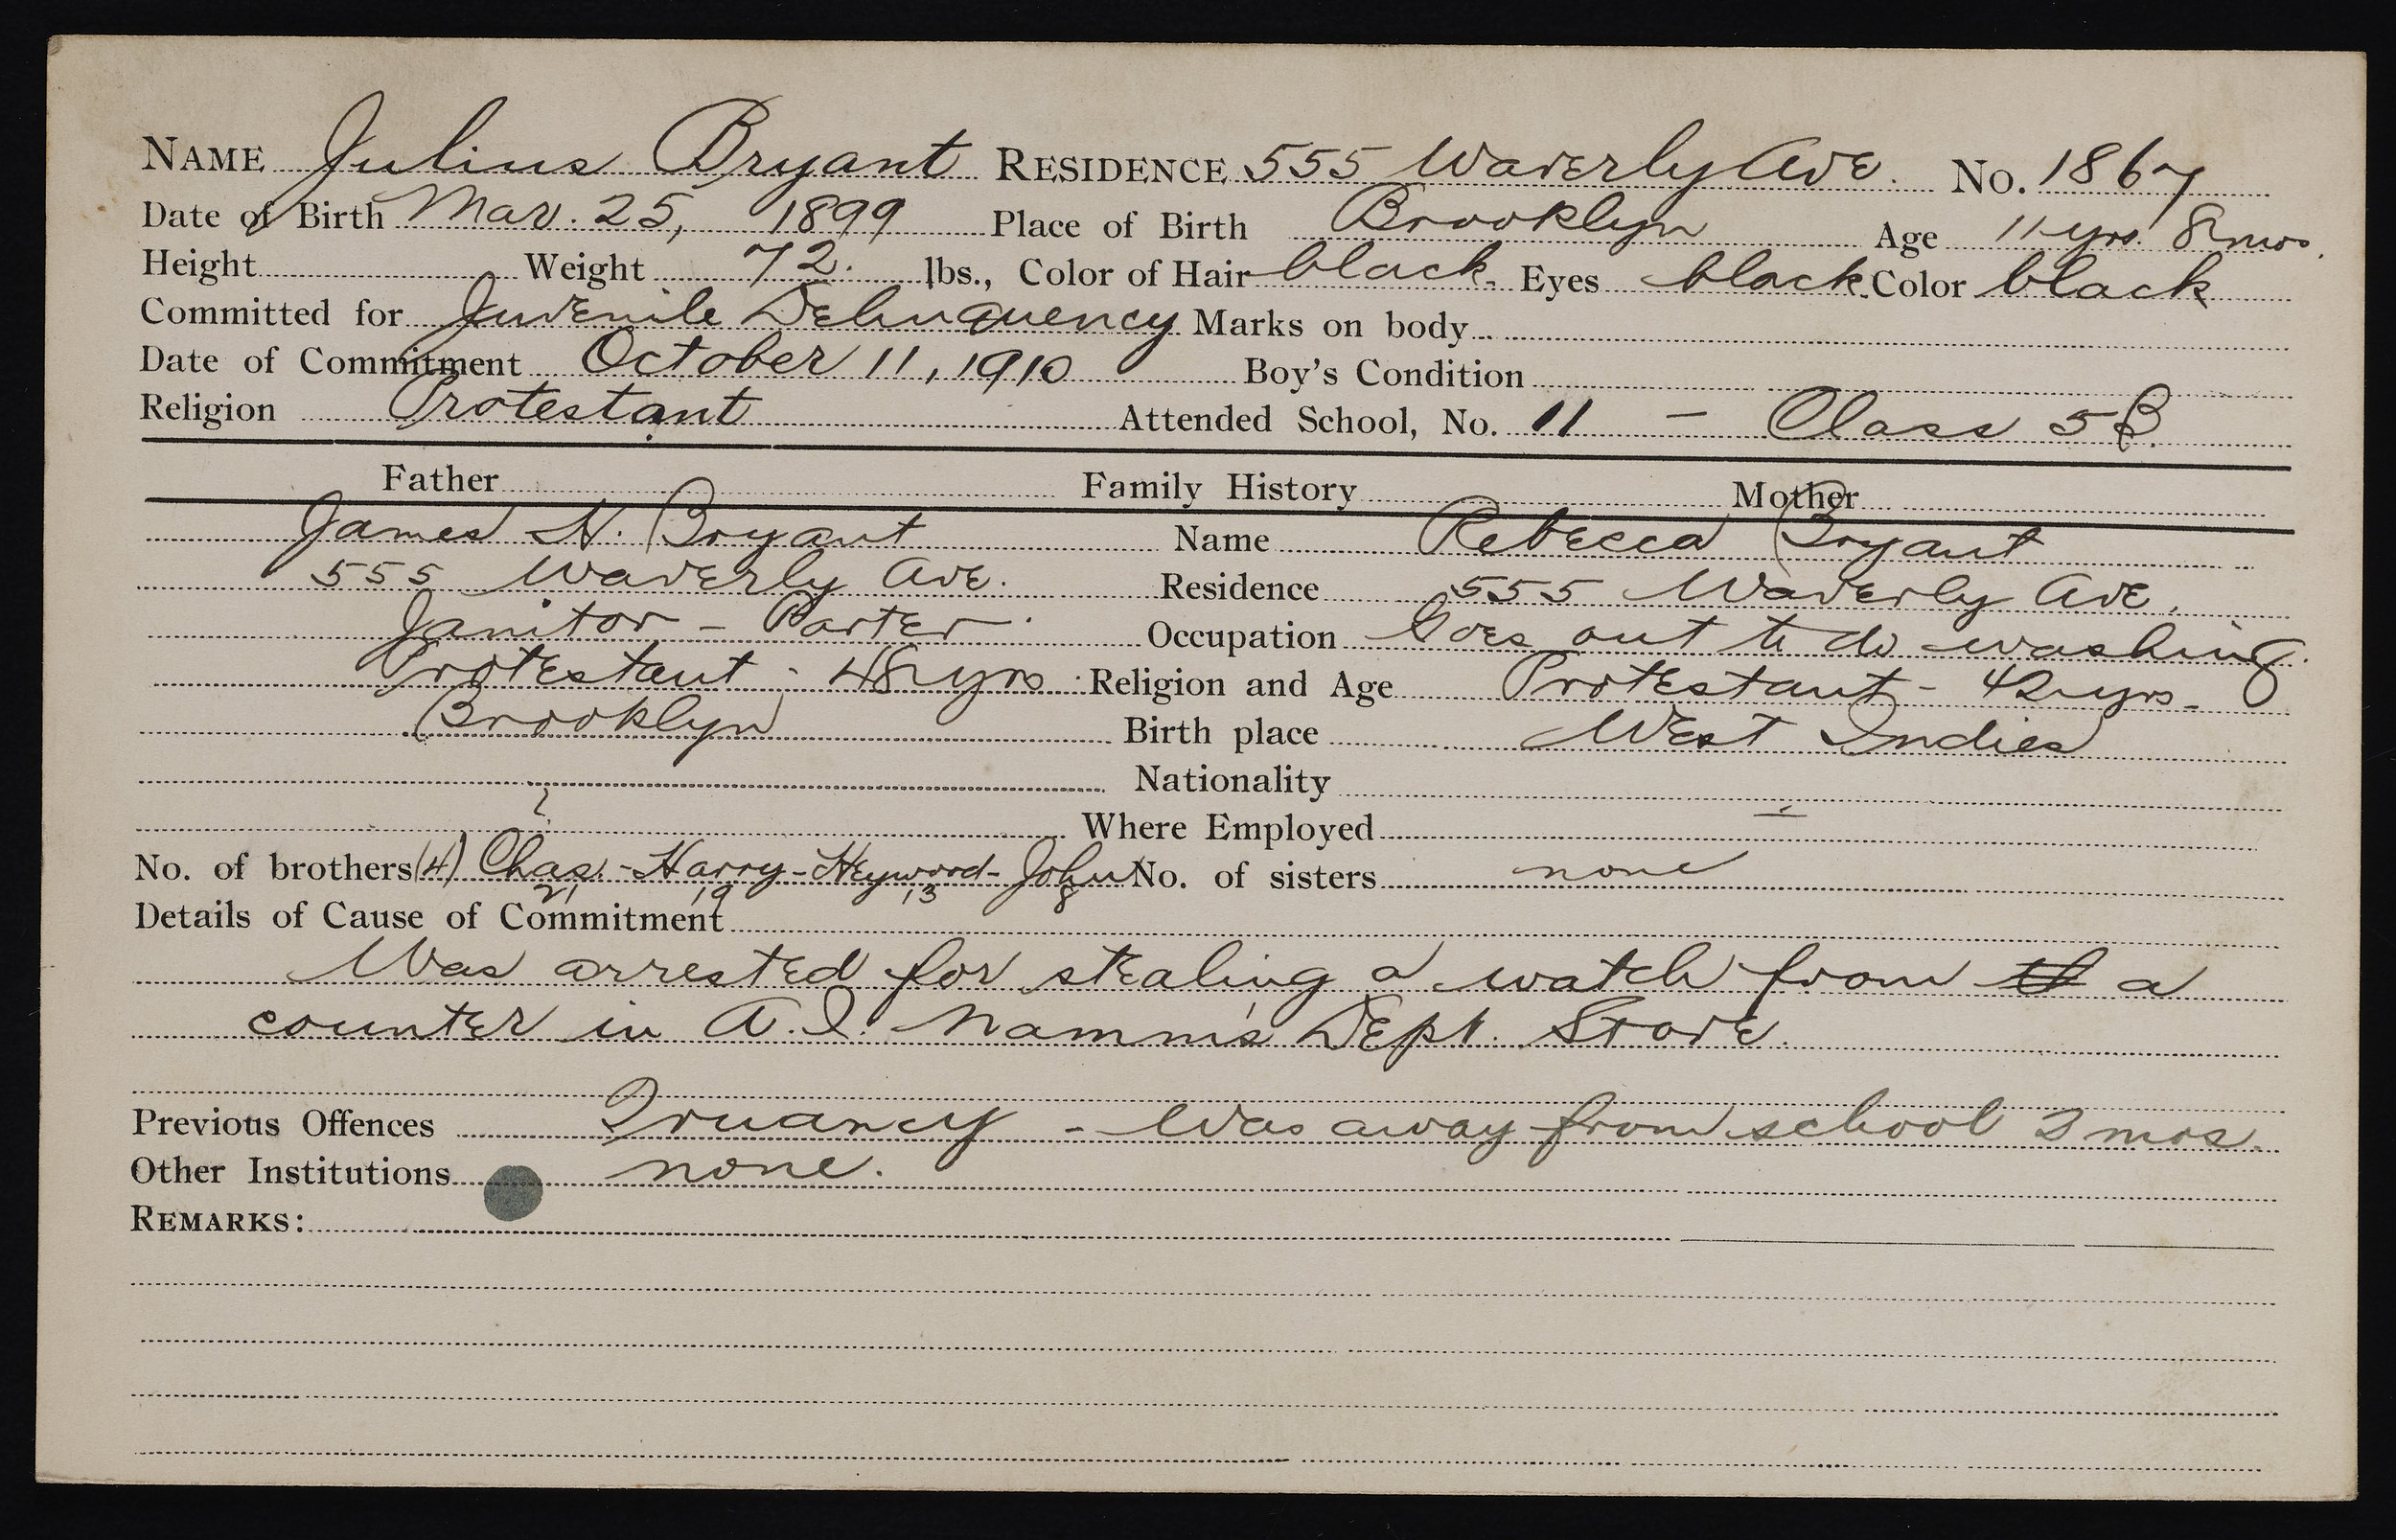 NAME Julius Bryant RESIDENCE 555 Waverly Ave. No. 1867
Date of Birth Mar. 25, 1899 Place of Birth Brooklyn Age 11 yrs. 8 mos.
Height Weight 72. lbs., Color of Hair black. Eyes black. Color black
Committed for Juvenile Delinquency Marks on body
Date of Commitment October 11, 1910 Boy's Condition
Religion Protestant Attended School, No. 11 — Class 5B.
Father Family History Mother
James N. Bryant Name Rebecca Bryant
555 Waverly Ave. Residence 555 Waverly Ave.
Janitor - Porter Occupation Goes out to do washing.
Protestant - 48 yrs Religion and Age Protestant - 42 yrs-
Brooklyn Birth place West Indies
Nationality
Where Employed
No. of brothers (4) Chas. - Harry - Heywood - John No. of sisters none
21 19 13 8
Details of Cause of Commitment
Was arrested for stealing a watch from a
counter in A. I. Namm's Dept. Store.
Previous Offences Truancy - Was away from school 3 mos.
Other Institutions none.
REMARKS: